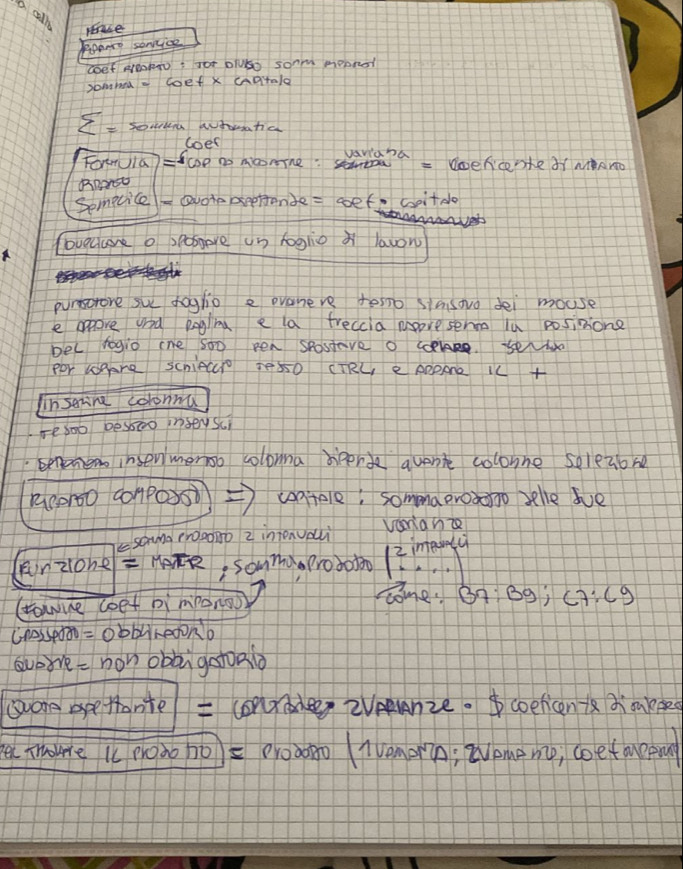 Riparto semplice
coef riparto : tot diviso somm
somma = coef x capitale
Σ = somma automatica
coef
Formula = cap da : variana = coeficente di riparto
Riparto
Semplice = Quota aspettande = coef • capitale
Duplicare o spostare un foglio di lavoro
puntatore sul foglio e premere tasto sinistro del mouse
e appare una pagina e la freccia rappresenta la posizione
Del foglio che sto per spostare o
per copiare schiaccio tasto CTRL e appare il +
Inserire colonna
. tasto destro inserisci
. inserimento colonna dipende quante colonne seleziono
Riparto composto => capitale : sommaprodotto delle due
varianze
← somma prodotto 2 intervalli
Funzione = MATR ; somma.prodotto (2 intervalli
. . . . )
come: B7:B9; C7:C9
(Fornire coef di riparto)
Grassetto = obbligatorio
Quadre = non obbligatorio
Quota aspettante = • 2 VARIANZE • $ coeficente di
per trovare il prodotto = prodotto (1 ; 2 ; coef